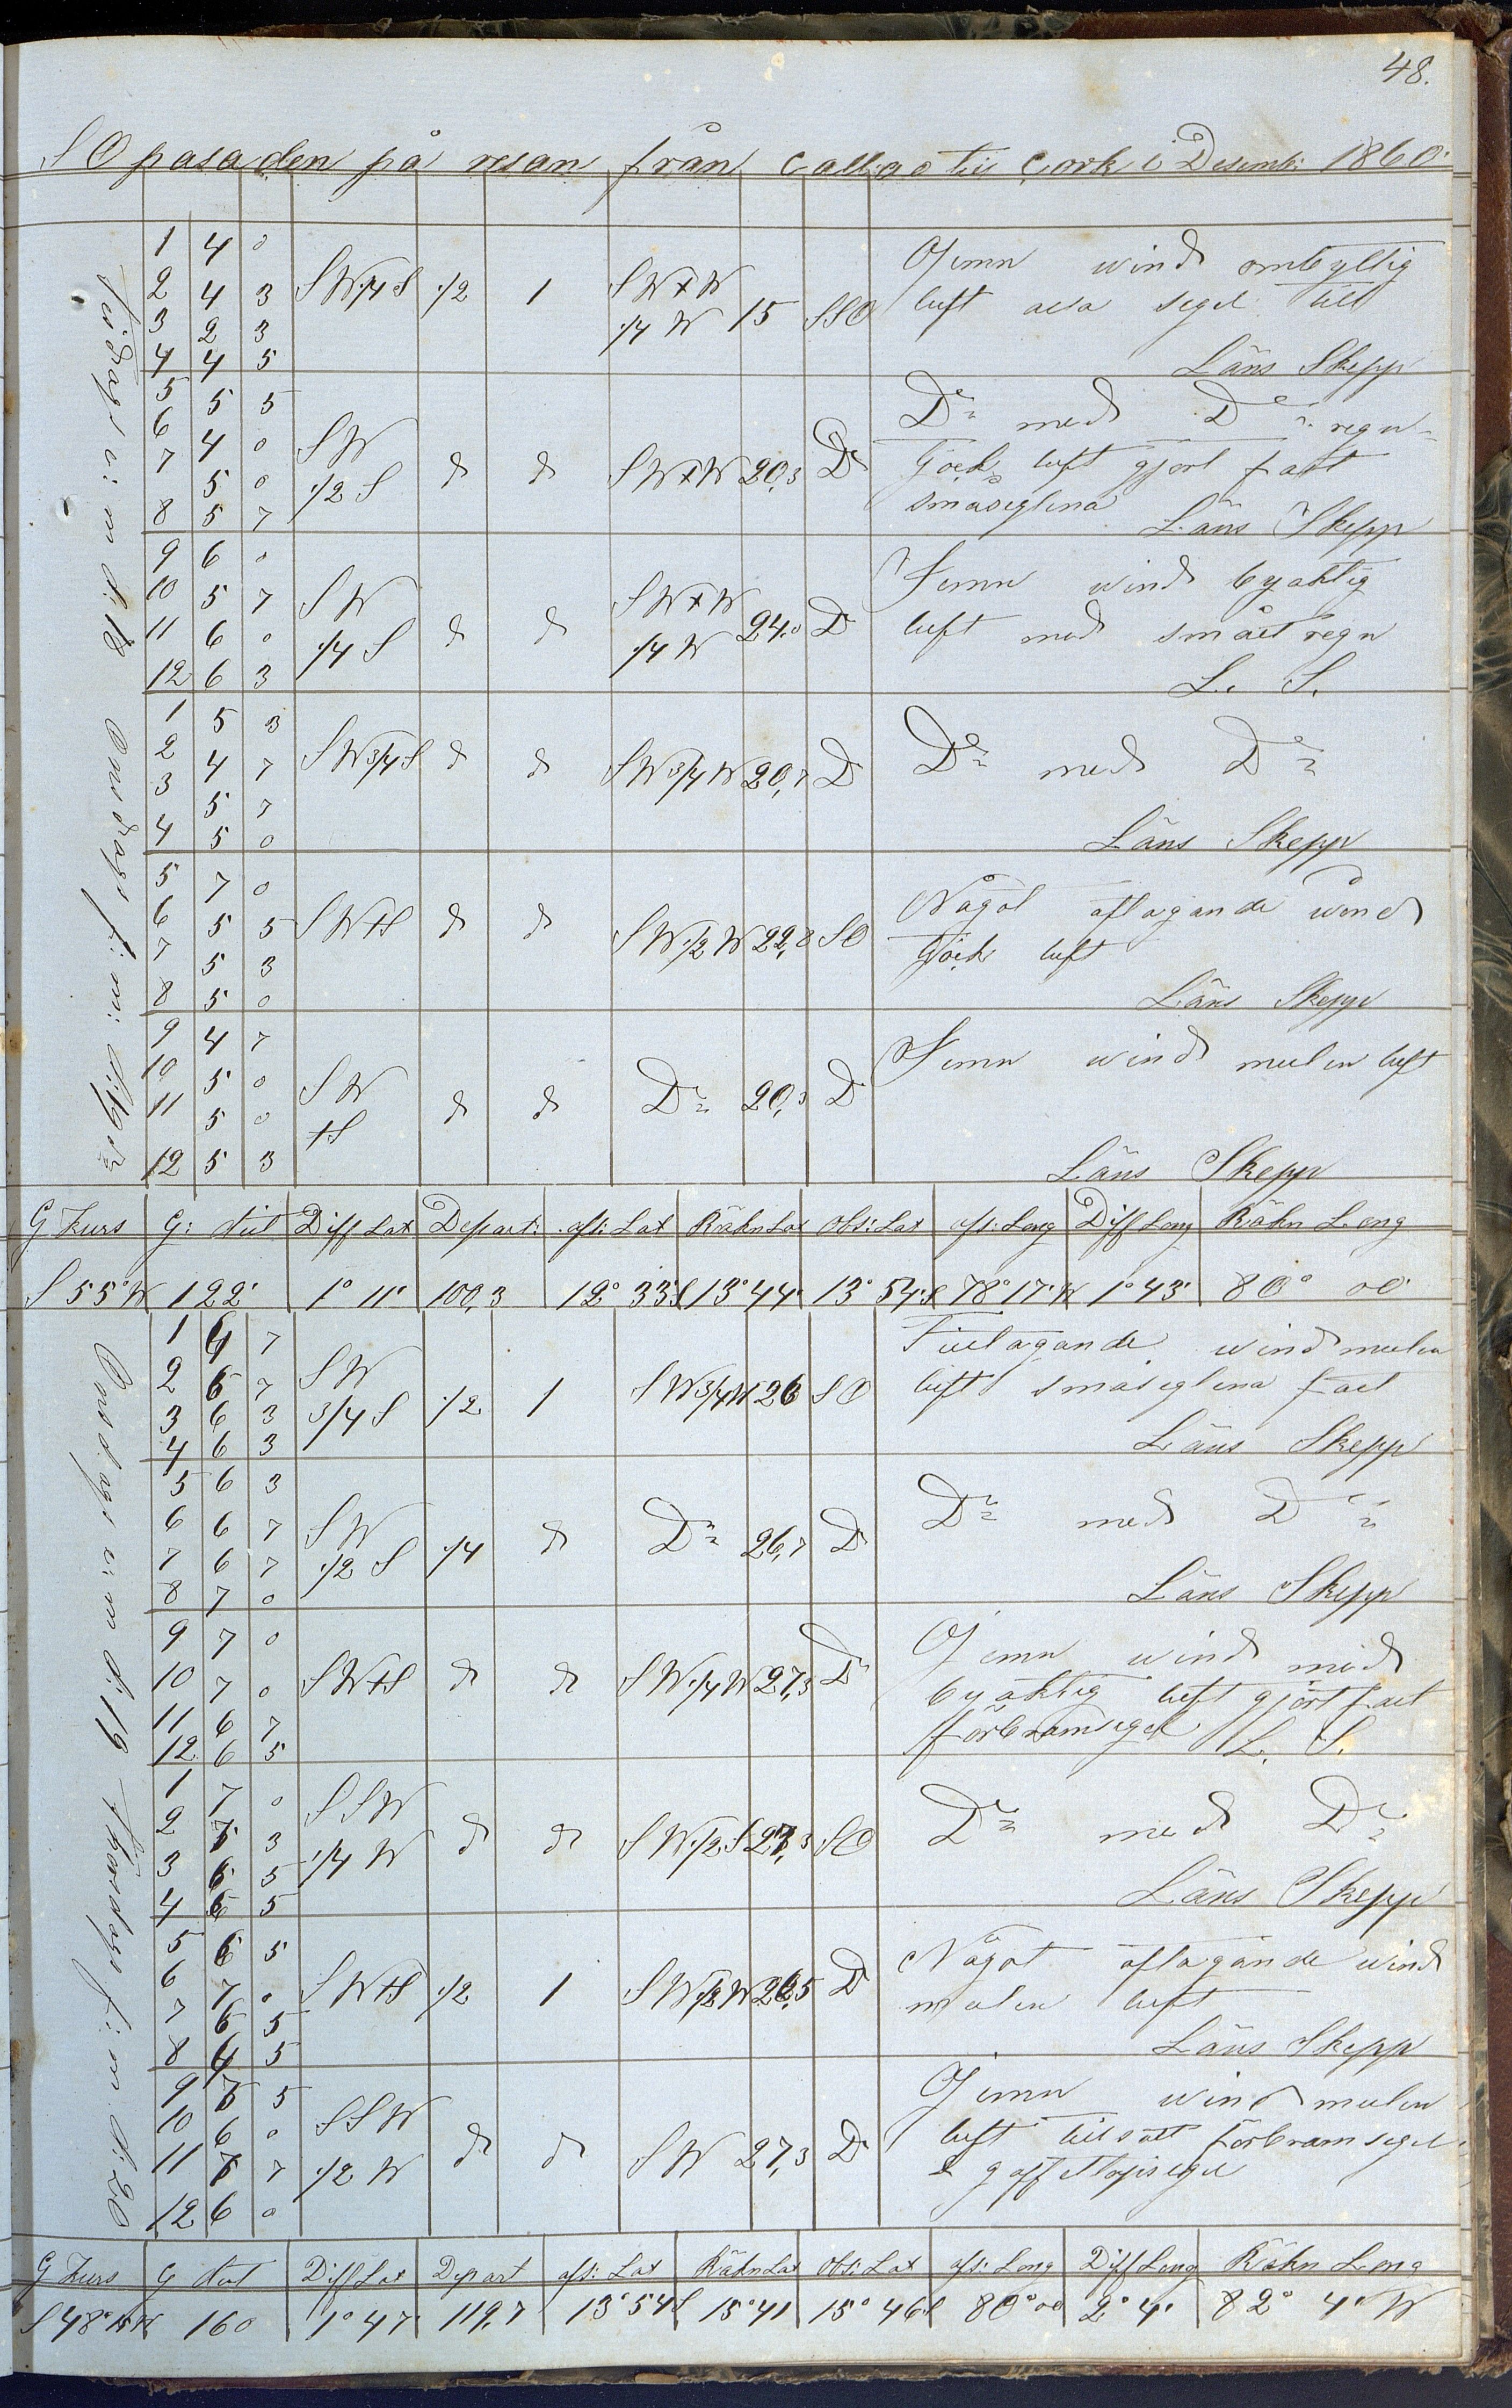 48.
S O pasaden på resan från Calljao till Cork i Desemb: 1860.
Tisdags e: m d: 18 Onsdags f: m: d: 19
1 4 0
2 4 3 SW 1/4 S 1/2 1 SW x W 1/4 W 15 SSO
3 2 3
4 4 5
Jemn wind ombyttlig
luft alla segel till
Läns Skepp
5 5 5
6 4 0 SW 1/2 S d d SW x W 20,3 D
7 5 0
8 5 7
Do med Do regn
tjock luft gjort fast
småseglena
Läns Skepp
9 6 0
10 5 7 SW 1/4 S d d SW x W 1/4 W 24,0 D
11 6 0
12 6 3
Jemn wind byaktig
luft med smått regn
L. S.
1 5 3
2 4 7 SW 3/4 S d d SW 3/4 W 20,7 D
3 5 7
4 5 0
Do med Do
Läns Skepp
5 7 0
6 5 5 SW x S d d SW 1/2 W 22,8 SO
7 5 3
8 5 0
Något aftagande wind
tjock luft
Läns Skepp
9 4 7
10 5 0 SW x S d d Do 20,3 D
11 5 0
12 5 3
Jemn wind mulen luft
Läns Skepp
G Kurs G: dist Diff Lat Depart: afs: Lat Räkn Lat Obs: Lat afs: Long Diff Long Räkn Long
S 55° W 122' 1° 11' 100,3 12° 33' S 13° 44' 13° 54' S 78° 17' W 1° 43' 80° 00'
Torsdags e: m d: 19 f: m d: 20
1 6 7
2 6 7 SW 3/4 S 1/2 1 SW 3/4 W 26 SO
3 6 3
4 6 3
Tilltagande wind mulen
luft småseglena fast
Läns Skepp
5 6 3
6 6 7 SW 1/2 S 1/4 d Do 26,7 D
7 6 7
8 7 0
Do med Do
Läns Skepp
9 7 0
10 7 0 SW x S d d SW 1/4 W 27,3 D
11 6 7
12 6 5
Jemn wind med
byaktig luft gjort fast
förbramsegel L. S.
1 7 0
2 7 3 SSW 1/4 W d d SW 1/2 S 27,3 SO
3 6 5
4 6 5
Do med Do
Läns Skepp
5 6 5
6 7 0 SW x S 1/2 1 SW 1/2 W 26,5 D
7 6 5
8 6 5
Något aftagande wind
mulen luft
Läns Skepp
9 7 5
10 6 0 SSW 1/2 W d d SW 27,3 D
11 7 7
12 6 0
Jemn wind mulen
luft tillsatt förbramsegel
& gaffeltopsegel
G Kurs G dist Diff Lat Depart afs: Lat Räkn Lat Obs: Lat afs: Long Diff Long Räkn Long
S 48° W 160 1° 47' 119,7 13° 54' S 15° 41 15° 46' S 80° 00 2° 4' 82° 4' W